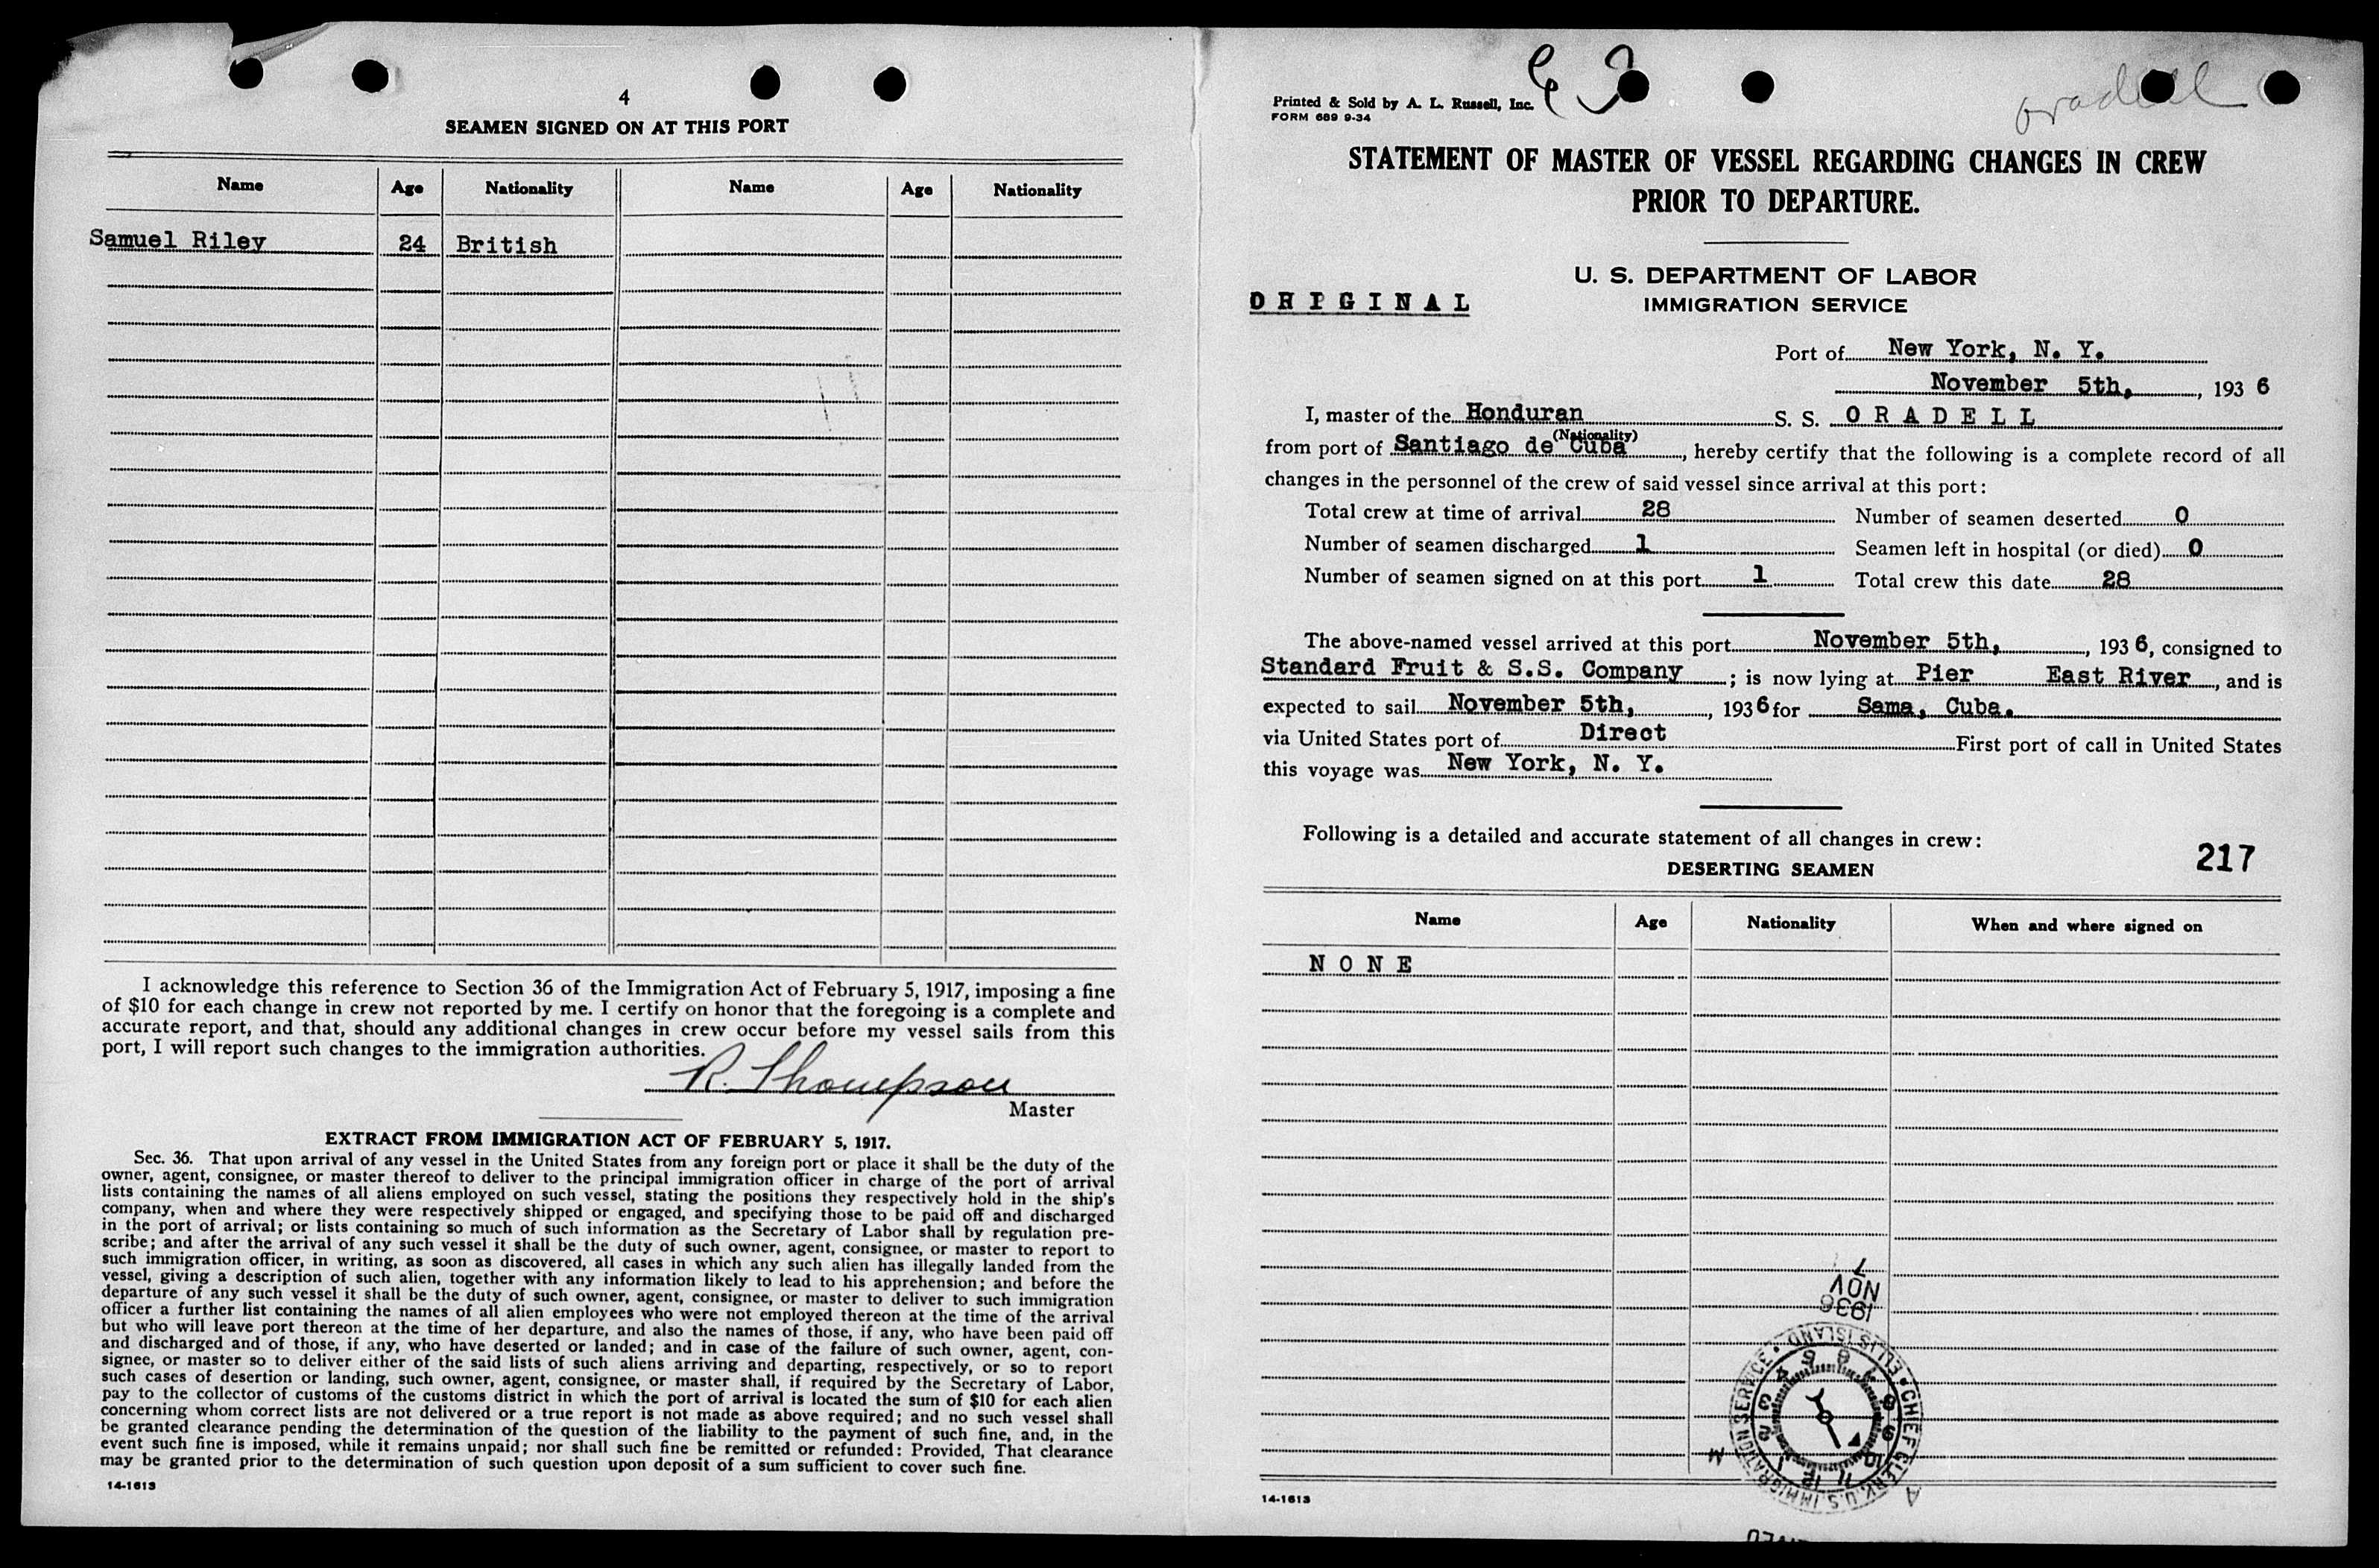 4
SEAMEN SIGNED ON AT THIS PORT
Name Age Nationality Name Age Nationality
Samuel Riley 24 British
I acknowledge this reference to Section 36 of the Immigration Act of February 5, 1917, imposing a fine
of $10 for each change in crew not reported by me. I certify on honor that the foregoing is a complete and
accurate report, and that, should any additional changes in crew occur before my vessel sails from this
port, I will report such changes to the immigration authorities.
R. Thompson
Master
EXTRACT FROM IMMIGRATION ACT OF FEBRUARY 5, 1917.
Sec. 36. That upon arrival of any vessel in the United States from any foreign port or place it shall be the duty of the
owner, agent, consignee, or master thereof to deliver to the principal immigration officer in charge of the port of arrival
lists containing the names of all aliens employed on such vessel, stating the positions they respectively hold in the ship's
company, when and where they were respectively shipped or engaged, and specifying those to be paid off and discharged
in the port of arrival; or lists containing so much of such information as the Secretary of Labor shall by regulation pre-
scribe; and after the arrival of any such vessel it shall be the duty of such owner, agent, consignee, or master to report to
such immigration officer, in writing, as soon as discovered, all cases in which any such alien has illegally landed from the
vessel, giving a description of such alien, together with any information likely to lead to his apprehension; and before the
departure of any such vessel it shall be the duty of such owner, agent, consignee, or master to deliver to such immigration
officer a further list containing the names of all alien employees who were not employed thereon at the time of the arrival
but who will leave port thereon at the time of her departure, and also the names of those, if any, who have been paid off
and discharged and of those, if any, who have deserted or landed; and in case of the failure of such owner, agent, con-
signee, or master so to deliver either of the said lists of such aliens arriving and departing, respectively, or so to report
such cases of desertion or landing, such owner, agent, consignee, or master shall, if required by the Secretary of Labor,
pay to the collector of customs of the customs district in which the port of arrival is located the sum of $10 for each alien
concerning whom correct lists are not delivered or a true report is not made as above required; and no such vessel shall
be granted clearance pending the determination of the question of the liability to the payment of such fine, and, in the
event such fine is imposed, while it remains unpaid; nor shall such fine be remitted or refunded: Provided, That clearance
may be granted prior to the determination of such question upon deposit of a sum sufficient to cover such fine.
14-1613
Printed & Sold by A. L. Russell, Inc.
FORM 689 9-34
oradell
STATEMENT OF MASTER OF VESSEL REGARDING CHANGES IN CREW
PRIOR TO DEPARTURE.
U. S. DEPARTMENT OF LABOR
IMMIGRATION SERVICE
ORIGINAL
Port of New York, N. Y.
November 5th, , 1936
I, master of the Honduran S. S. ORADELL
(Nationality)
from port of Santiago de Cuba , hereby certify that the following is a complete record of all
changes in the personnel of the crew of said vessel since arrival at this port:
Total crew at time of arrival 28 Number of seamen deserted 0
Number of seamen discharged 1 Seamen left in hospital (or died) 0
Number of seamen signed on at this port 1 Total crew this date 28
The above-named vessel arrived at this port November 5th, , 1936, consigned to
Standard Fruit & S.S. Company ; is now lying at Pier East River , and is
expected to sail November 5th, , 1936 for Sama, Cuba.
via United States port of Direct First port of call in United States
this voyage was New York, N. Y.
Following is a detailed and accurate statement of all changes in crew:
217
DESERTING SEAMEN
Name Age Nationality When and where signed on
NONE
1936
NOV
7
CHIEF CLERK, U.S. IMMIGRATION SERVICE • ELLIS ISLAND •
1 2 3 4 5 6 7 8 9 10 11 12
A M
14-1613